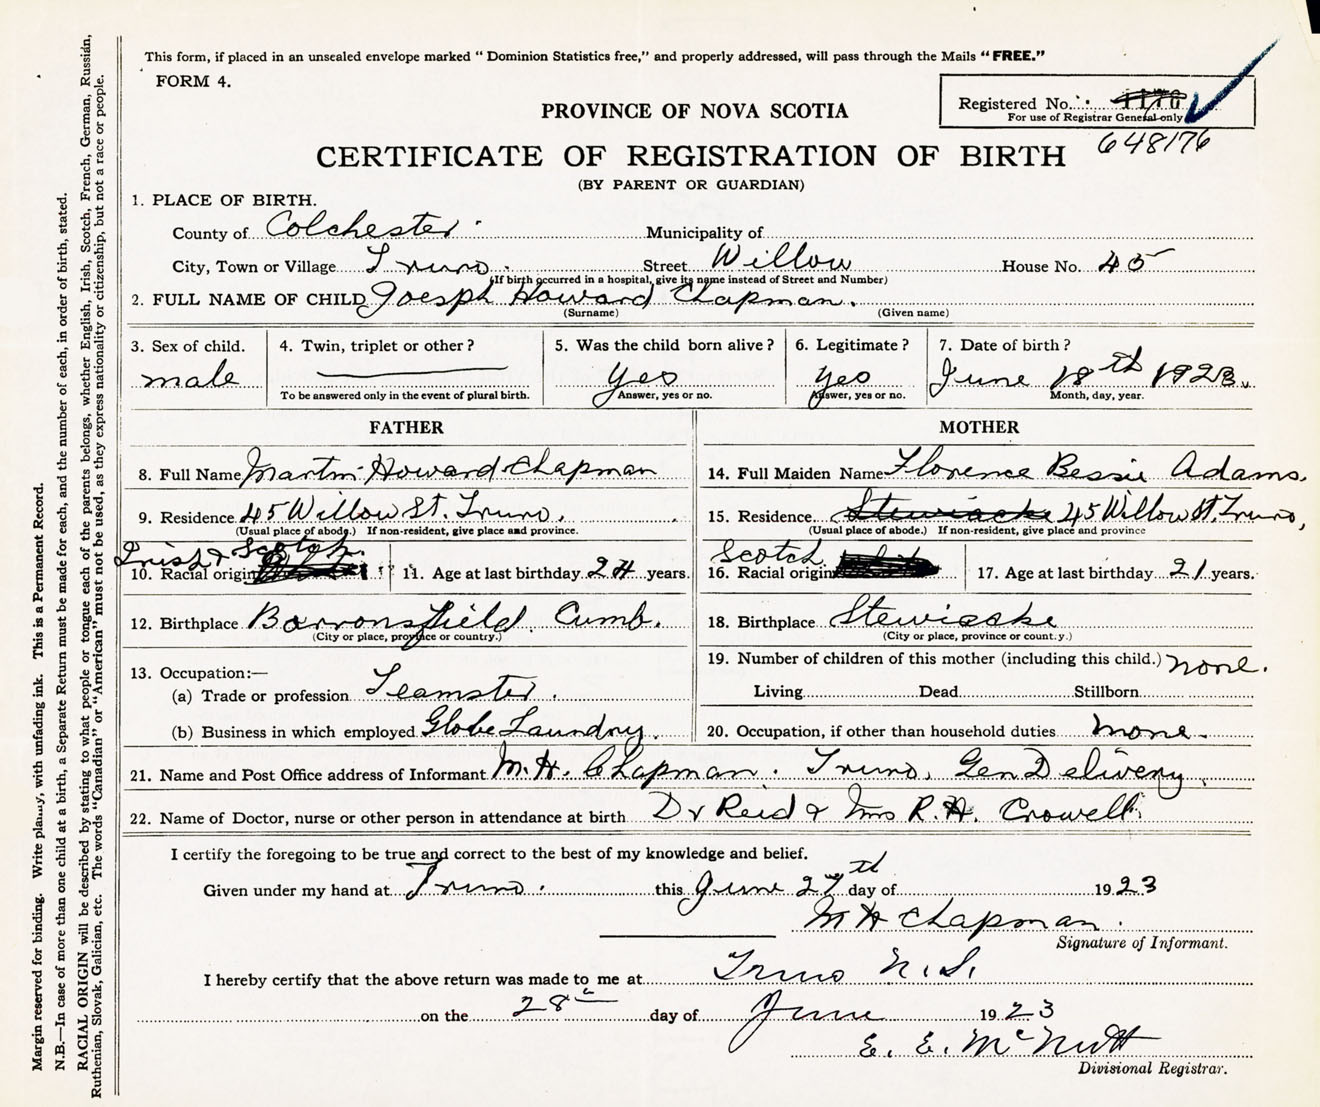 This form, if placed in an unsealed envelope marked "Dominion Statistics free," and properly addressed, will pass through the Mails "FREE."
FORM 4.
Registered No.
For use of Registrar General only
648176
PROVINCE OF NOVA SCOTIA
CERTIFICATE OF REGISTRATION OF BIRTH
(BY PARENT OR GUARDIAN)
1. PLACE OF BIRTH.
County of Colchester Municipality of
City, Town or Village Truro. Street Willow House No. 45
(If birth occurred in a hospital, give its name instead of Street and Number)
2. FULL NAME OF CHILD Joesph Howard Chapman.
(Surname) (Given name)
3. Sex of child. 4. Twin, triplet or other? 5. Was the child born alive? 6. Legitimate? 7. Date of birth?
male yes yes June 18th 1923.
To be answered only in the event of plural birth. Answer, yes or no. Answer, yes or no. Month, day, year.
FATHER MOTHER
8. Full Name Martin Howard Chapman 14. Full Maiden Name Florence Bessie Adams.
9. Residence 45 Willow St. Truro. 15. Residence Stewiacke 45 Willow St. Truro,
(Usual place of abode.) If non-resident, give place and province. (Usual place of abode.) If non-resident, give place and province
Irish & Scotch. Scotch
10. Racial origin 11. Age at last birthday 24 years. 16. Racial origin 17. Age at last birthday 21 years.
12. Birthplace Barronsfield. Cumb. 18. Birthplace Stewiacke
(City or place, province or country.) (City or place, province or count.y.)
13. Occupation:— 19. Number of children of this mother (including this child.) none.
(a) Trade or profession Teamster. Living Dead Stillborn
(b) Business in which employed Globe Laundry. 20. Occupation, if other than household duties none.
21. Name and Post Office address of Informant M.H. Chapman. Truro, Gen Delivery.
22. Name of Doctor, nurse or other person in attendance at birth Dr Reid & Mrs R.H. Crowell.
I certify the foregoing to be true and correct to the best of my knowledge and belief.
Given under my hand at Truro. this June 27th day of 1923
M H Chapman.
Signature of Informant.
I hereby certify that the above return was made to me at Truro N.S.
on the 28th day of June 1923
E. E. McNutt
Divisional Registrar.
Margin reserved for binding. Write plainly, with unfading ink. This is a Permanent Record.
N.B.—In case of more than one child at a birth, a Separate Return must be made for each, and the number of each, in order of birth, stated.
RACIAL ORIGIN will be described by stating to what people or tongue each of the parents belongs, whether English, Irish, Scotch, French, German, Russian,
Ruthenian, Slovak, Galician, etc. The words "Canadian" or "American" must not be used, as they express nationality or citizenship, but not a race or people.